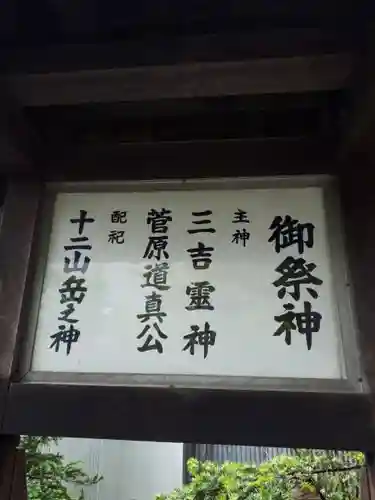 御祭神
主神
三吉霊神
菅原道真公
配祀
十二山岳之神